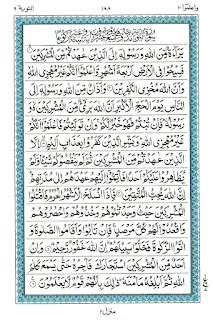 واعلموا ١٠
التوبة ٩
بَرَآءَةٌ مِّنَ اللهِ وَرَسُولِهٖٓ اِلَى الَّذِيْنَ عٰهَدْتُّمْ مِّنَ الْمُشْرِكِيْنَ
فَسِيْحُوْا فِي الْاَرْضِ اَرْبَعَةَ اَشْهُرٍ وَّاعْلَمُوْٓا اَنَّكُمْ غَيْرُ مُعْجِزِي اللهِ
وَاَنَّ اللهَ مُخْزِي الْكٰفِرِيْنَ وَاَذَانٌ مِّنَ اللهِ وَرَسُوْلِهٖٓ اِلَى
النَّاسِ يَوْمَ الْحَجِّ الْاَكْبَرِ اَنَّ اللهَ بَرِيْٓءٌ مِّنَ الْمُشْرِكِيْنَ
وَرَسُوْلُهٗ فَاِنْ تُبْتُمْ فَهُوَ خَيْرٌ لَّكُمْ وَاِنْ تَوَلَّيْتُمْ فَاعْلَمُوْٓا اَنَّكُمْ
غَيْرُ مُعْجِزِي اللهِ وَبَشِّرِ الَّذِيْنَ كَفَرُوْا بِعَذَابٍ اَلِيْمٍ اِلَّا الَّذِيْنَ
عٰهَدْتُّمْ مِّنَ الْمُشْرِكِيْنَ ثُمَّ لَمْ يَنْقُصُوْكُمْ شَيْئًا وَّلَمْ
يُظَاهِرُوْا عَلَيْكُمْ اَحَدًا فَاَتِمُّوْٓا اِلَيْهِمْ عَهْدَهُمْ اِلٰى مُدَّتِهِمْ
اِنَّ اللهَ يُحِبُّ الْمُتَّقِيْنَ فَاِذَا انْسَلَخَ الْاَشْهُرُ الْحُرُمُ فَاقْتُلُوا
الْمُشْرِكِيْنَ حَيْثُ وَجَدْتُّمُوْهُمْ وَخُذُوْهُمْ وَاحْصُرُوْهُمْ
وَاقْعُدُوْا لَهُمْ كُلَّ مَرْصَدٍ فَاِنْ تَابُوْا وَاَقَامُوا الصَّلٰوةَ وَ
اٰتَوُا الزَّكٰوةَ فَخَلُّوْا سَبِيْلَهُمْ اِنَّ اللهَ غَفُوْرٌ رَّحِيْمٌ وَاِنْ
اَحَدٌ مِّنَ الْمُشْرِكِيْنَ اسْتَجَارَكَ فَاَجِرْهُ حَتّٰى يَسْمَعَ كَلٰمَ
اللهِ ثُمَّ اَبْلِغْهُ مَاْمَنَهٗ ذٰلِكَ بِاَنَّهُمْ قَوْمٌ لَّا يَعْلَمُوْنَ
منزل ٢